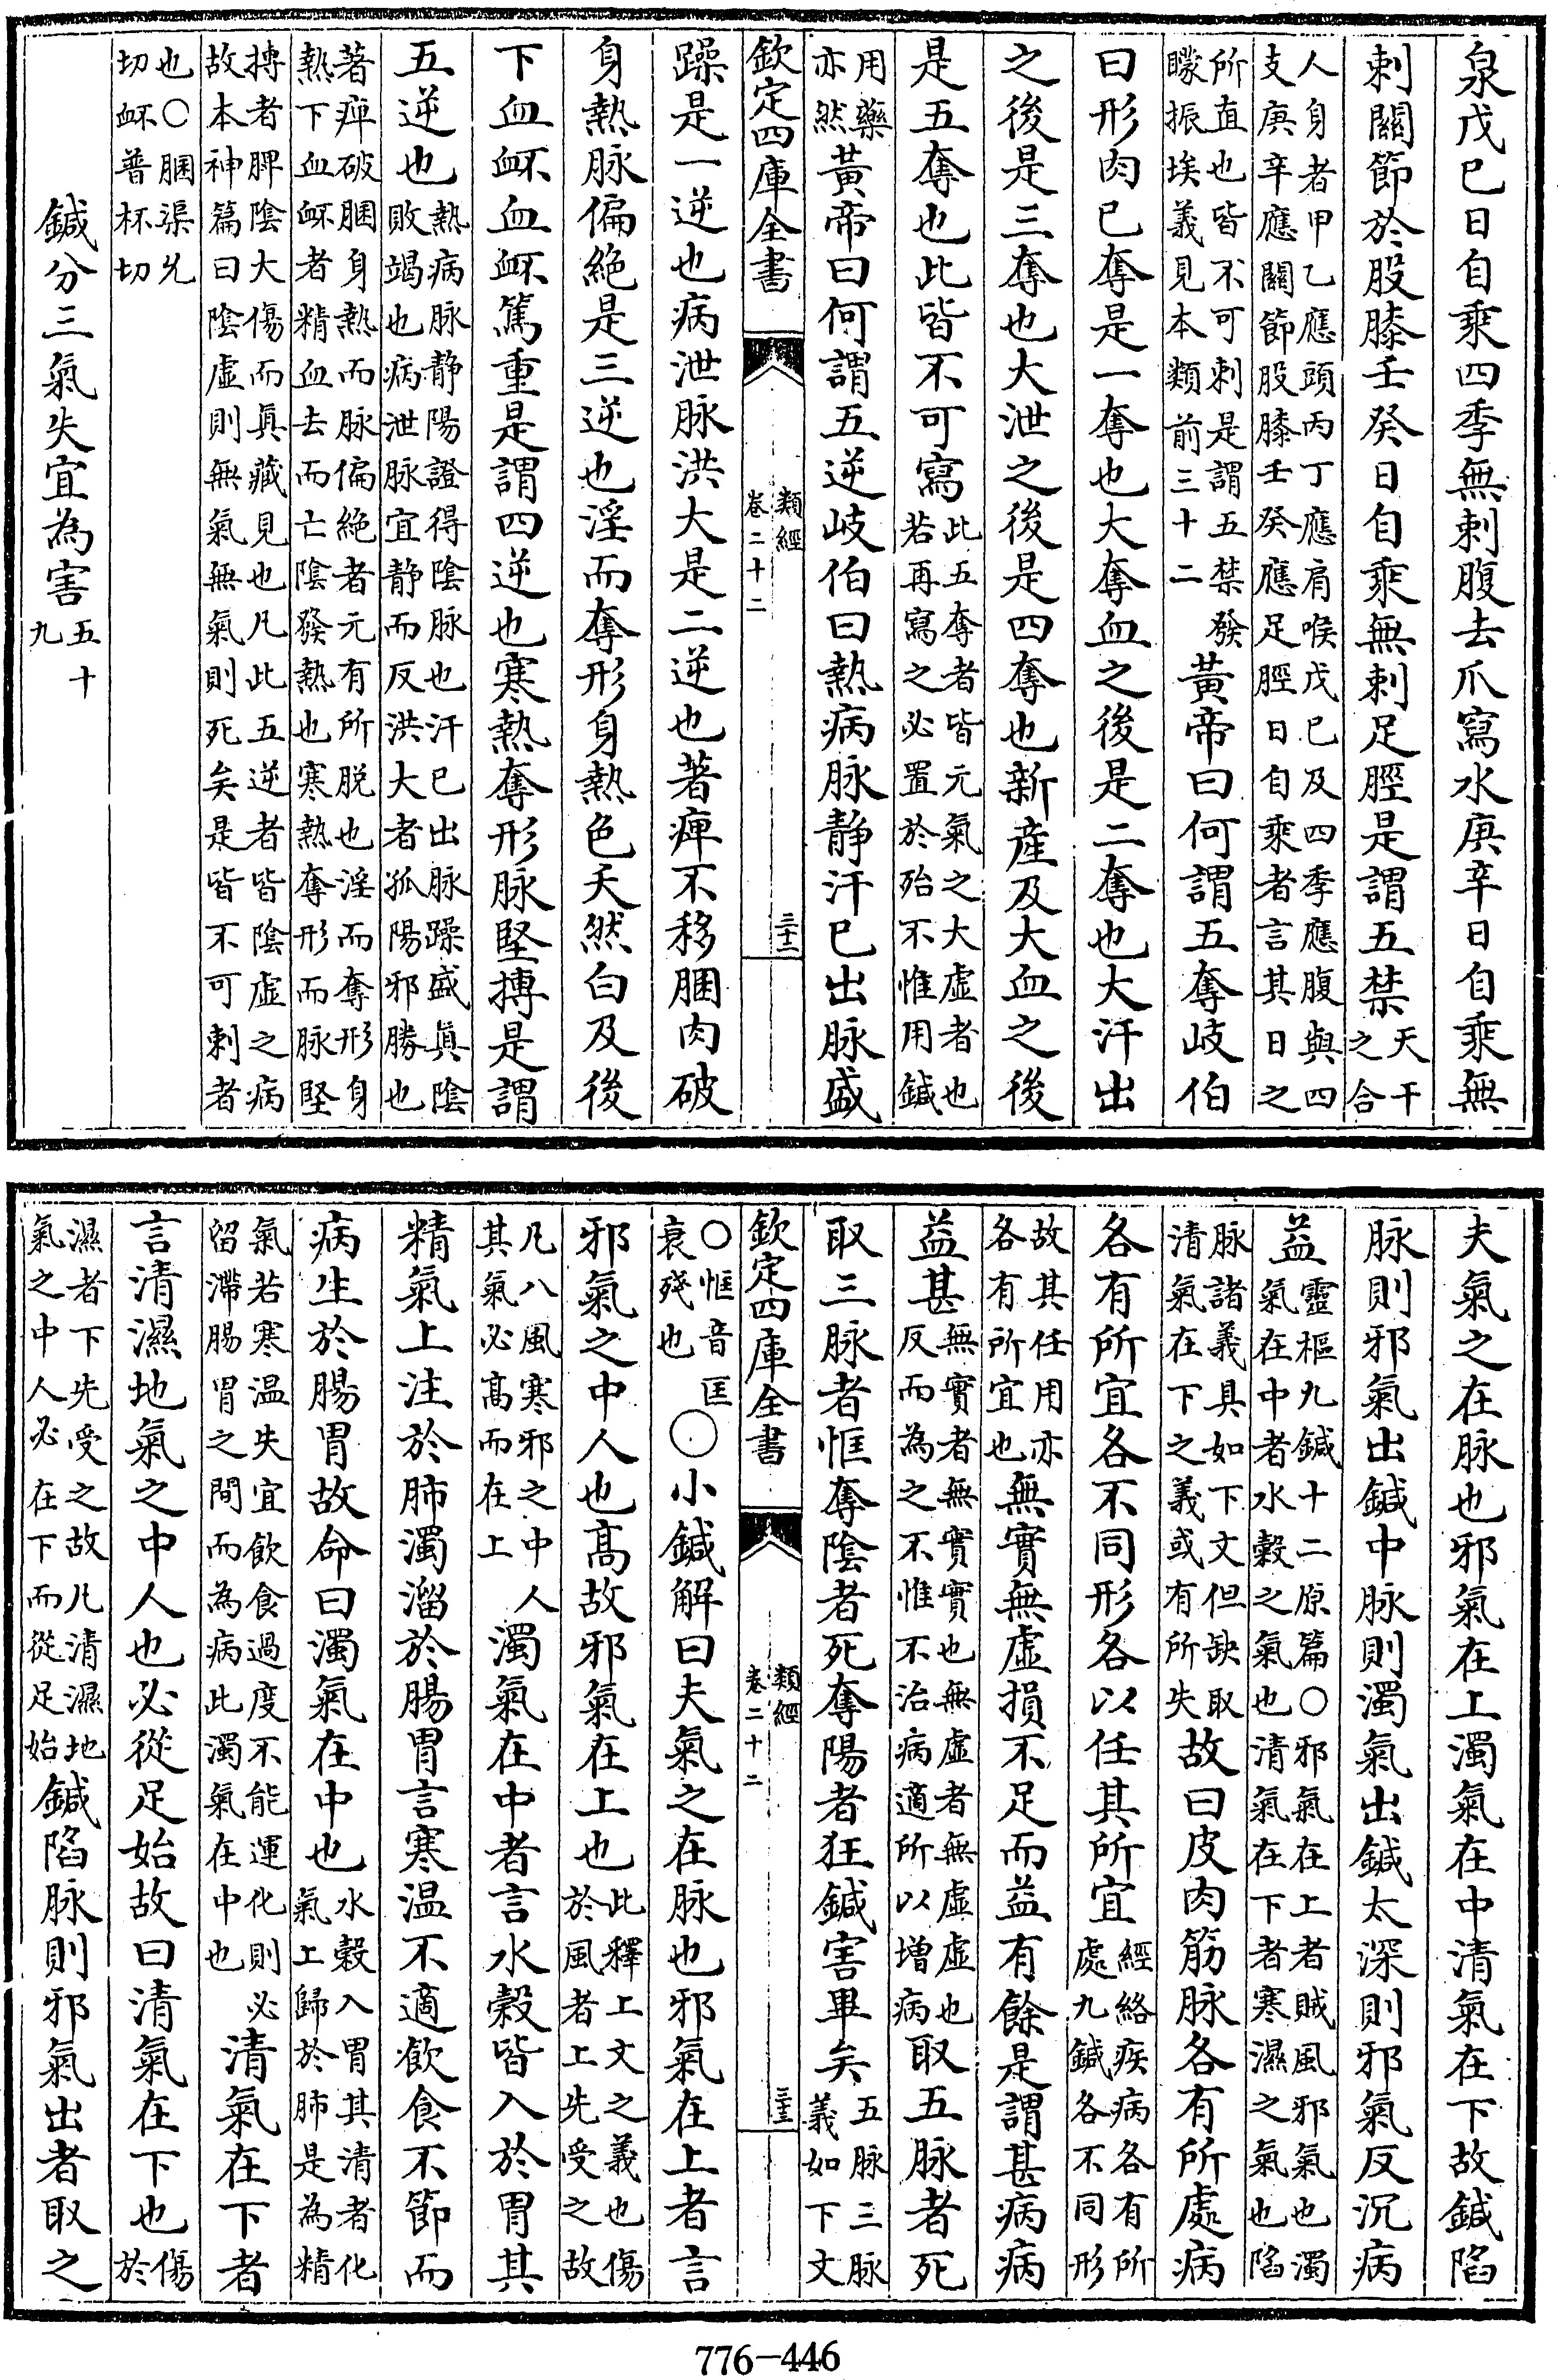 泉戊巳日自乘四季無刺腹去爪寫水庚辛日自乘無
刺關節於股膝壬癸日自乘無刺足脛是謂五禁天干之合
人身者甲乙應頭丙丁應肩喉戊巳及四季應腹與四
支庚辛應關節股膝壬癸應足脛日自乘者言其日之
所直也皆不可刺是謂五禁發矇振埃義見本類前三十二黃帝曰何謂五奪岐伯
曰形肉已奪是一奪也大奪血之後是二奪也大汗出
之後是三奪也大泄之後是四奪也新產及大血之後
是五奪也此皆不可寫此五奪者皆元氣之大虛者也若再寫之必置於殆不惟用鍼
用藥亦然黃帝曰何謂五逆岐伯曰熱病脉静汗已出脉盛
欽定四庫全書
類經
卷二十二
三十二
躁是一逆也病泄脉洪大是二逆也著痺不移䐃肉破
身熱脉偏絶是三逆也淫而奪形身熱色夭然白及後
下血衃血衃篤重是謂四逆也寒熱奪形脉堅搏是謂
五逆也熱病脉静陽證得陰脉也汗已出脉躁盛真陰敗竭也病泄脉宜静而反洪大者孤陽邪勝也
著痺破䐃身熱而脉偏絶者元有所脱也淫而奪形身
熱下血衃者精血去而亡陰發熱也寒熱奪形而脉堅
搏者脾陰大傷而真藏見也凡此五逆者皆陰虛之病
故本神篇曰陰虛則無氣無氣則死矣是皆不可刺者
也○䐃渠允
切衃普杯切
鍼分三氣失宜為害五十九
夫氣之在脉也邪氣在上濁氣在中清氣在下故鍼陷
脉則邪氣出鍼中脉則濁氣出鍼太深則邪氣反沉病
益靈樞九鍼十二原篇○邪氣在上者賊風邪氣也濁氣在中者水穀之氣也清氣在下者寒濕之氣也陷
脉諸義具如下文但缺取清氣在下之義或有所失故曰皮肉筋脉各有所處病
各有所宜各不同形各以任其所宜經絡疾病各有所處九鍼各不同形
故其任用亦各有所宜也無實無虛損不足而益有餘是謂甚病病
益甚無實者無實實也無虛者無虛虛也反而為之不惟不治病適所以增病取五脉者死
取三脉者恇奪陰者死奪陽者狂鍼害畢矣五脉三脉義如下文
欽定四庫全書
類經
卷二十二
三十三
○恇音匡衰殘也○小鍼解曰夫氣之在脉也邪氣在上者言
邪氣之中人也高故邪氣在上也此釋上文之義也傷於風者上先受之故
凡八風寒邪之中人其氣必高而在上濁氣在中者言水穀皆入於胃其
精氣上注於肺濁溜於腸胃言寒温不適飲食不節而
病生於腸胃故命曰濁氣在中也水穀入胃其清者化氣上歸於肺是為精
氣若寒温失宜飲食過度不能運化則必留滯腸胃之間而為病此濁氣在中也清氣在下者
言清濕地氣之中人也必從足始故曰清氣在下也傷於
濕者下先受之故凡清濕地氣之中人必在下而從足始鍼陷脉則邪氣出者取之
776-446